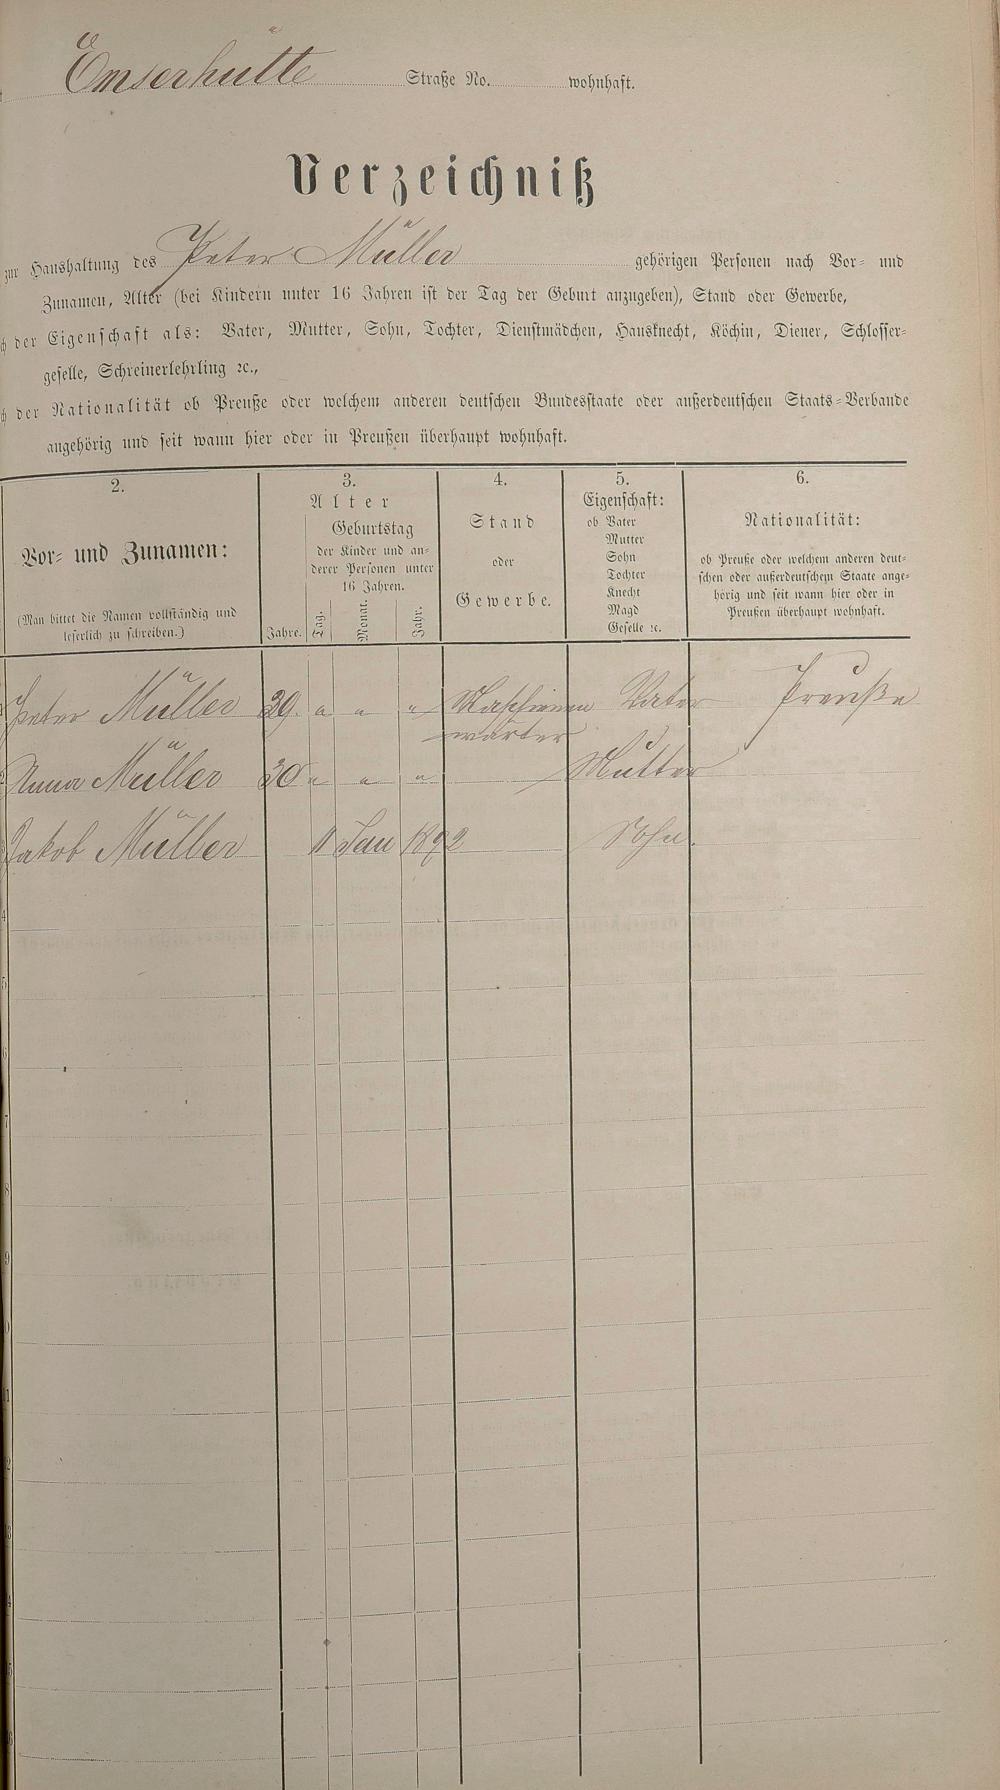 Emserhütte Straße No. wohnhaft.
Verzeichniß
zur Haushaltung des Peter Müller gehörigen Personen nach Vor- und
Zunamen, Alter (bei Kindern unter 16 Jahren ist der Tag der Geburt anzugeben), Stand oder Gewerbe,
der Eigenschaft als: Vater, Mutter, Sohn, Tochter, Dienstmädchen, Hausknecht, Köchin, Diener, Schlosser-
geselle, Schreinerlehrling ꝛc.,
der Nationalität ob Preuße oder welchem anderen deutschen Bundesstaate oder außerdeutschen Staats-Verbande
angehörig und seit wann hier oder in Preußen überhaupt wohnhaft.
2.
Vor- und Zunamen:
(Man bittet die Namen vollständig und
leserlich zu schreiben.)
3.
Alter
Geburtstag
der Kinder und an-
derer Personen unter
16 Jahren.
Jahre. Tag. Monat. Jahr.
4.
Stand
oder
Gewerbe.
5.
Eigenschaft:
ob Vater
Mutter
Sohn
Tochter
Knecht
Magd
Geselle ꝛc.
6.
Nationalität:
ob Preuße oder welchem anderen deut-
schen oder außerdeutschem Staate ange-
hörig und seit wann hier oder in
Preußen überhaupt wohnhaft.
Peter Müller 29. " " " Maschinen Vater Preuße
wärter
2 Anna Müller 30 " " " Mutter
3 Jakob Müller 11 Jan 1892 Sohn.
4
5
6
7
8
9
10
11
12
13
14
15
16